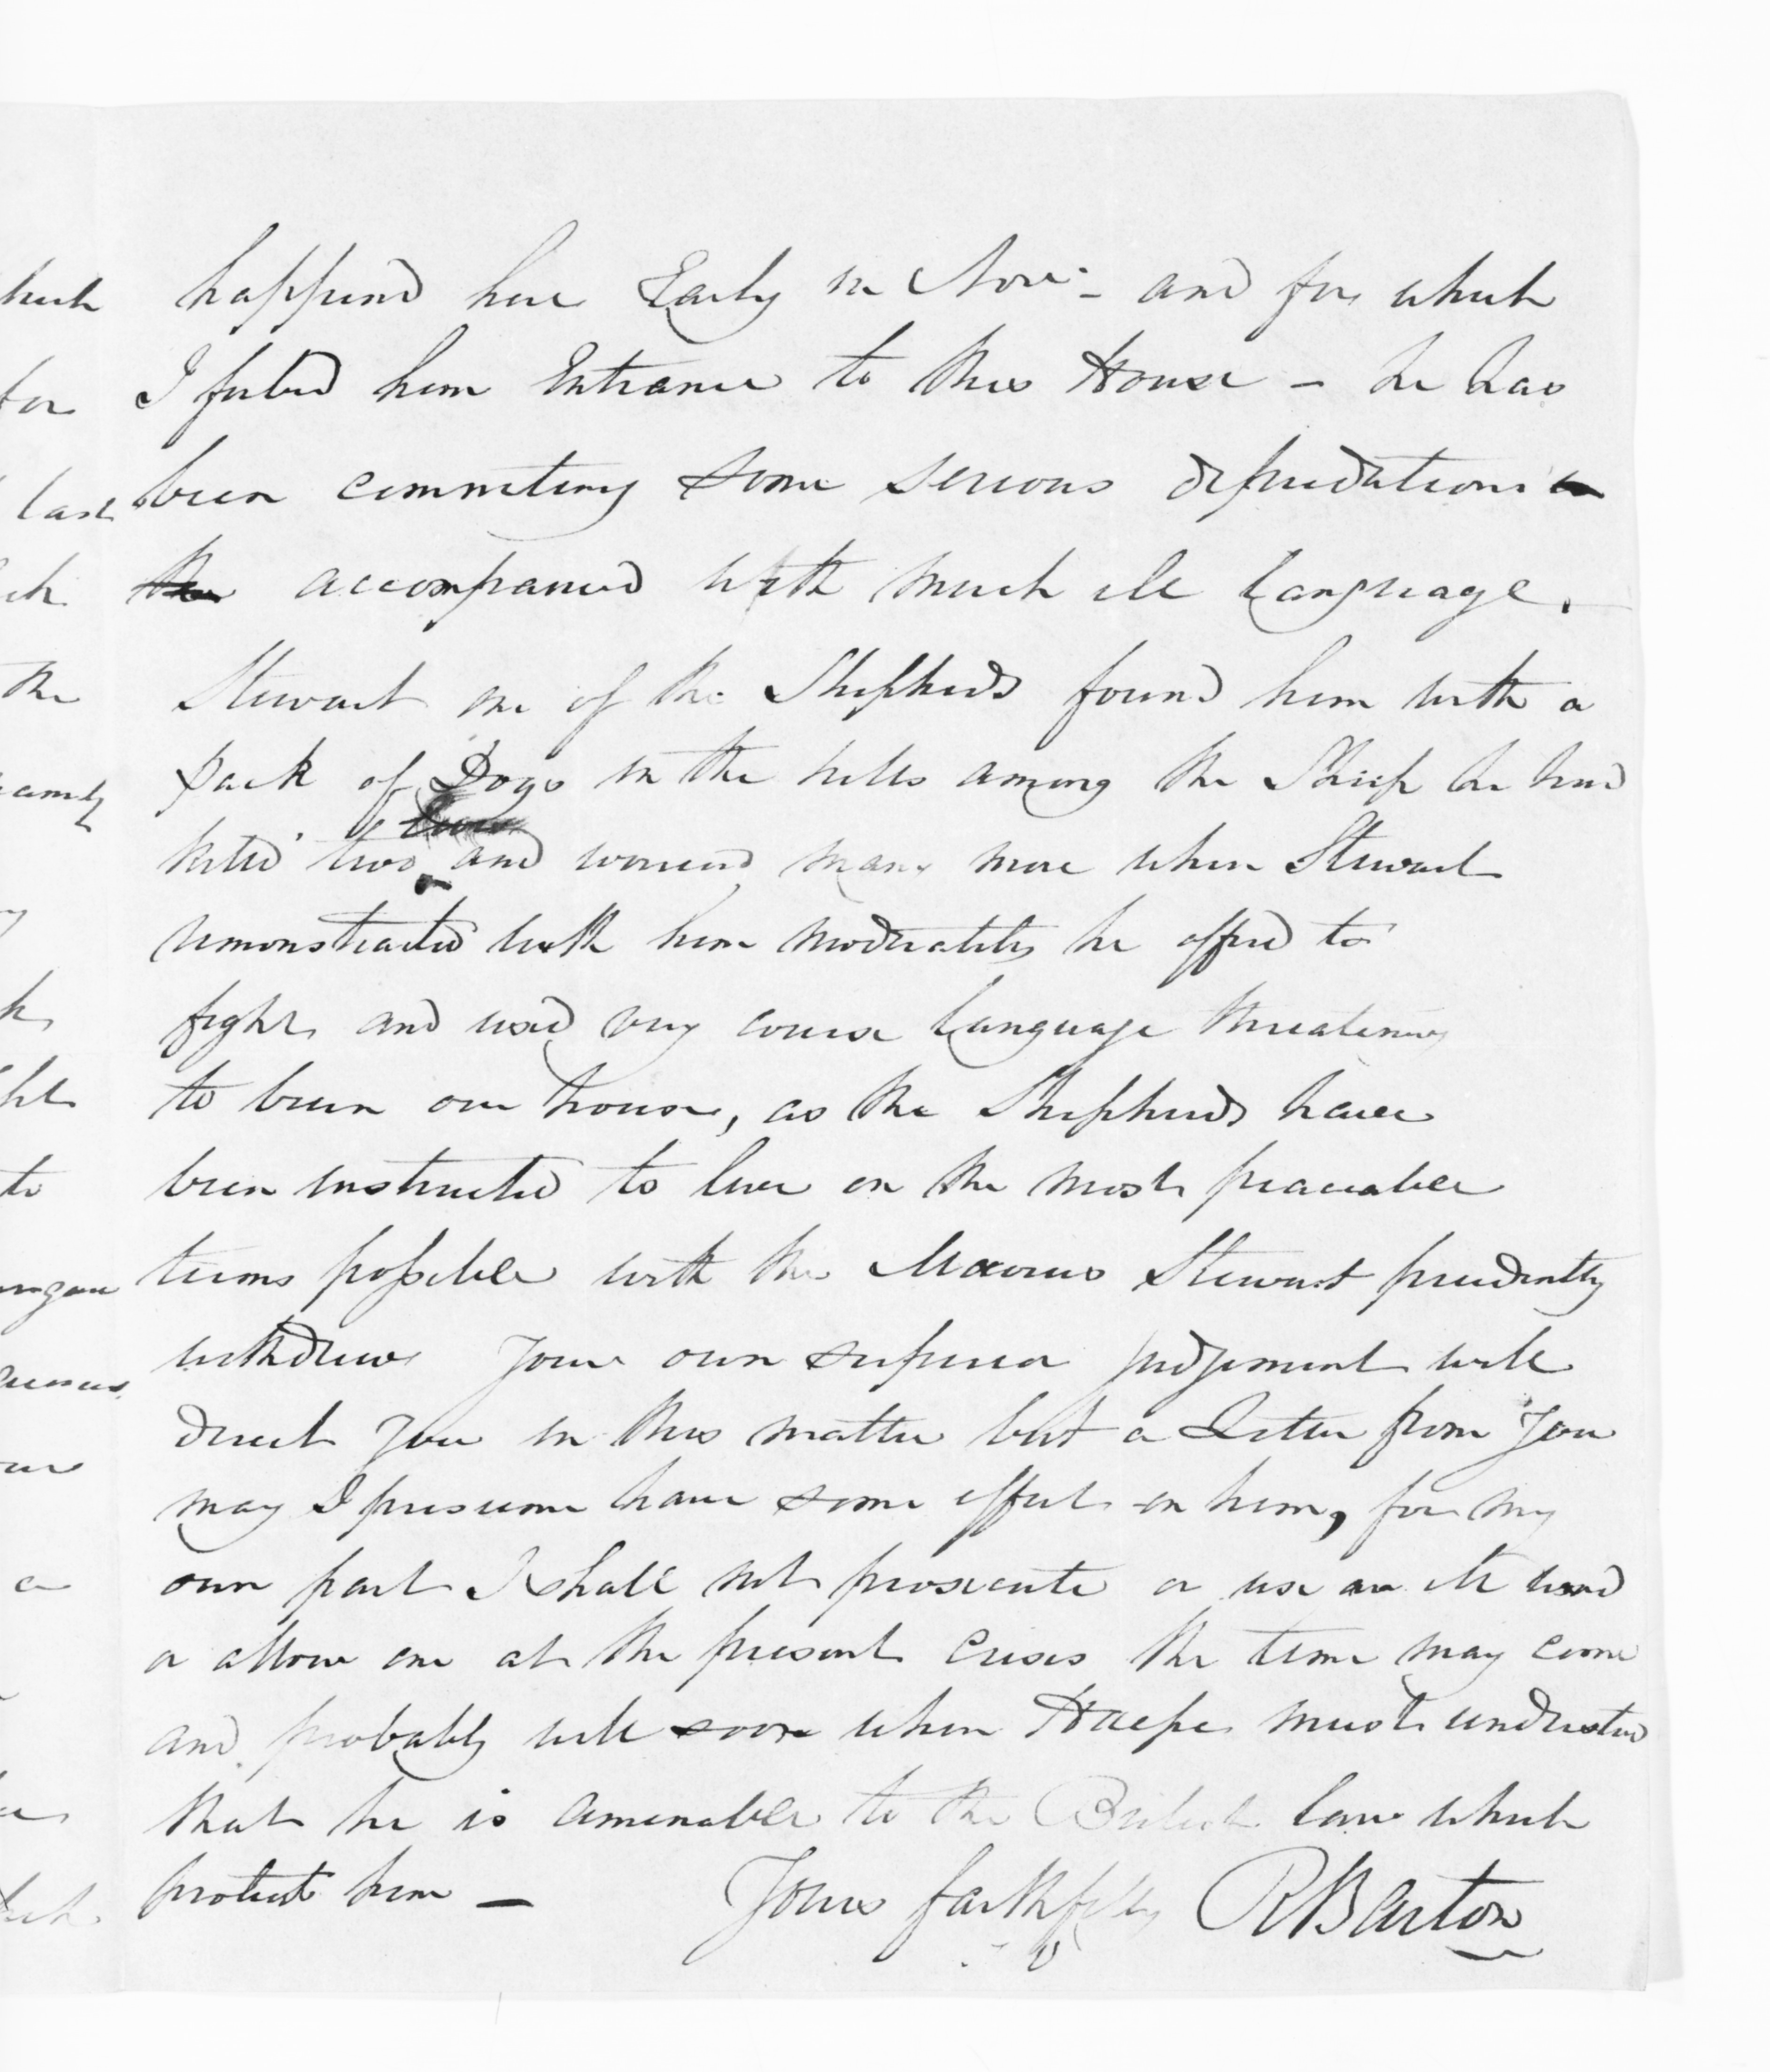 happend here Early in Novr - and for which
I forbid him Entrance to this House - he has
been commiting some serious depredations
accompanied with much ill language.
Stewart one of the Shepherds found him with a
pack of Dogs in the hills among the Sheep he had
killed two and worried many more when Stewart
remonstrated with him moderately he offred to
fight and used very course language threatening
to burn our house, as the Shepherds have
been instructed to live on the most peaceable
terms possible with the Maoris Stewart prudently
withdrew Your own superior judgement will
direct You in this matter but a Letter from You
may I presume have some effect on him, for my
own part I shall not prosecute or use an ill word
or allow one at the present Crisis the time may come
and probably will soon when Haepe must understand
that he is amenable to the British law which
protects him -
Yours faithfully RBarton
last
the
to
a